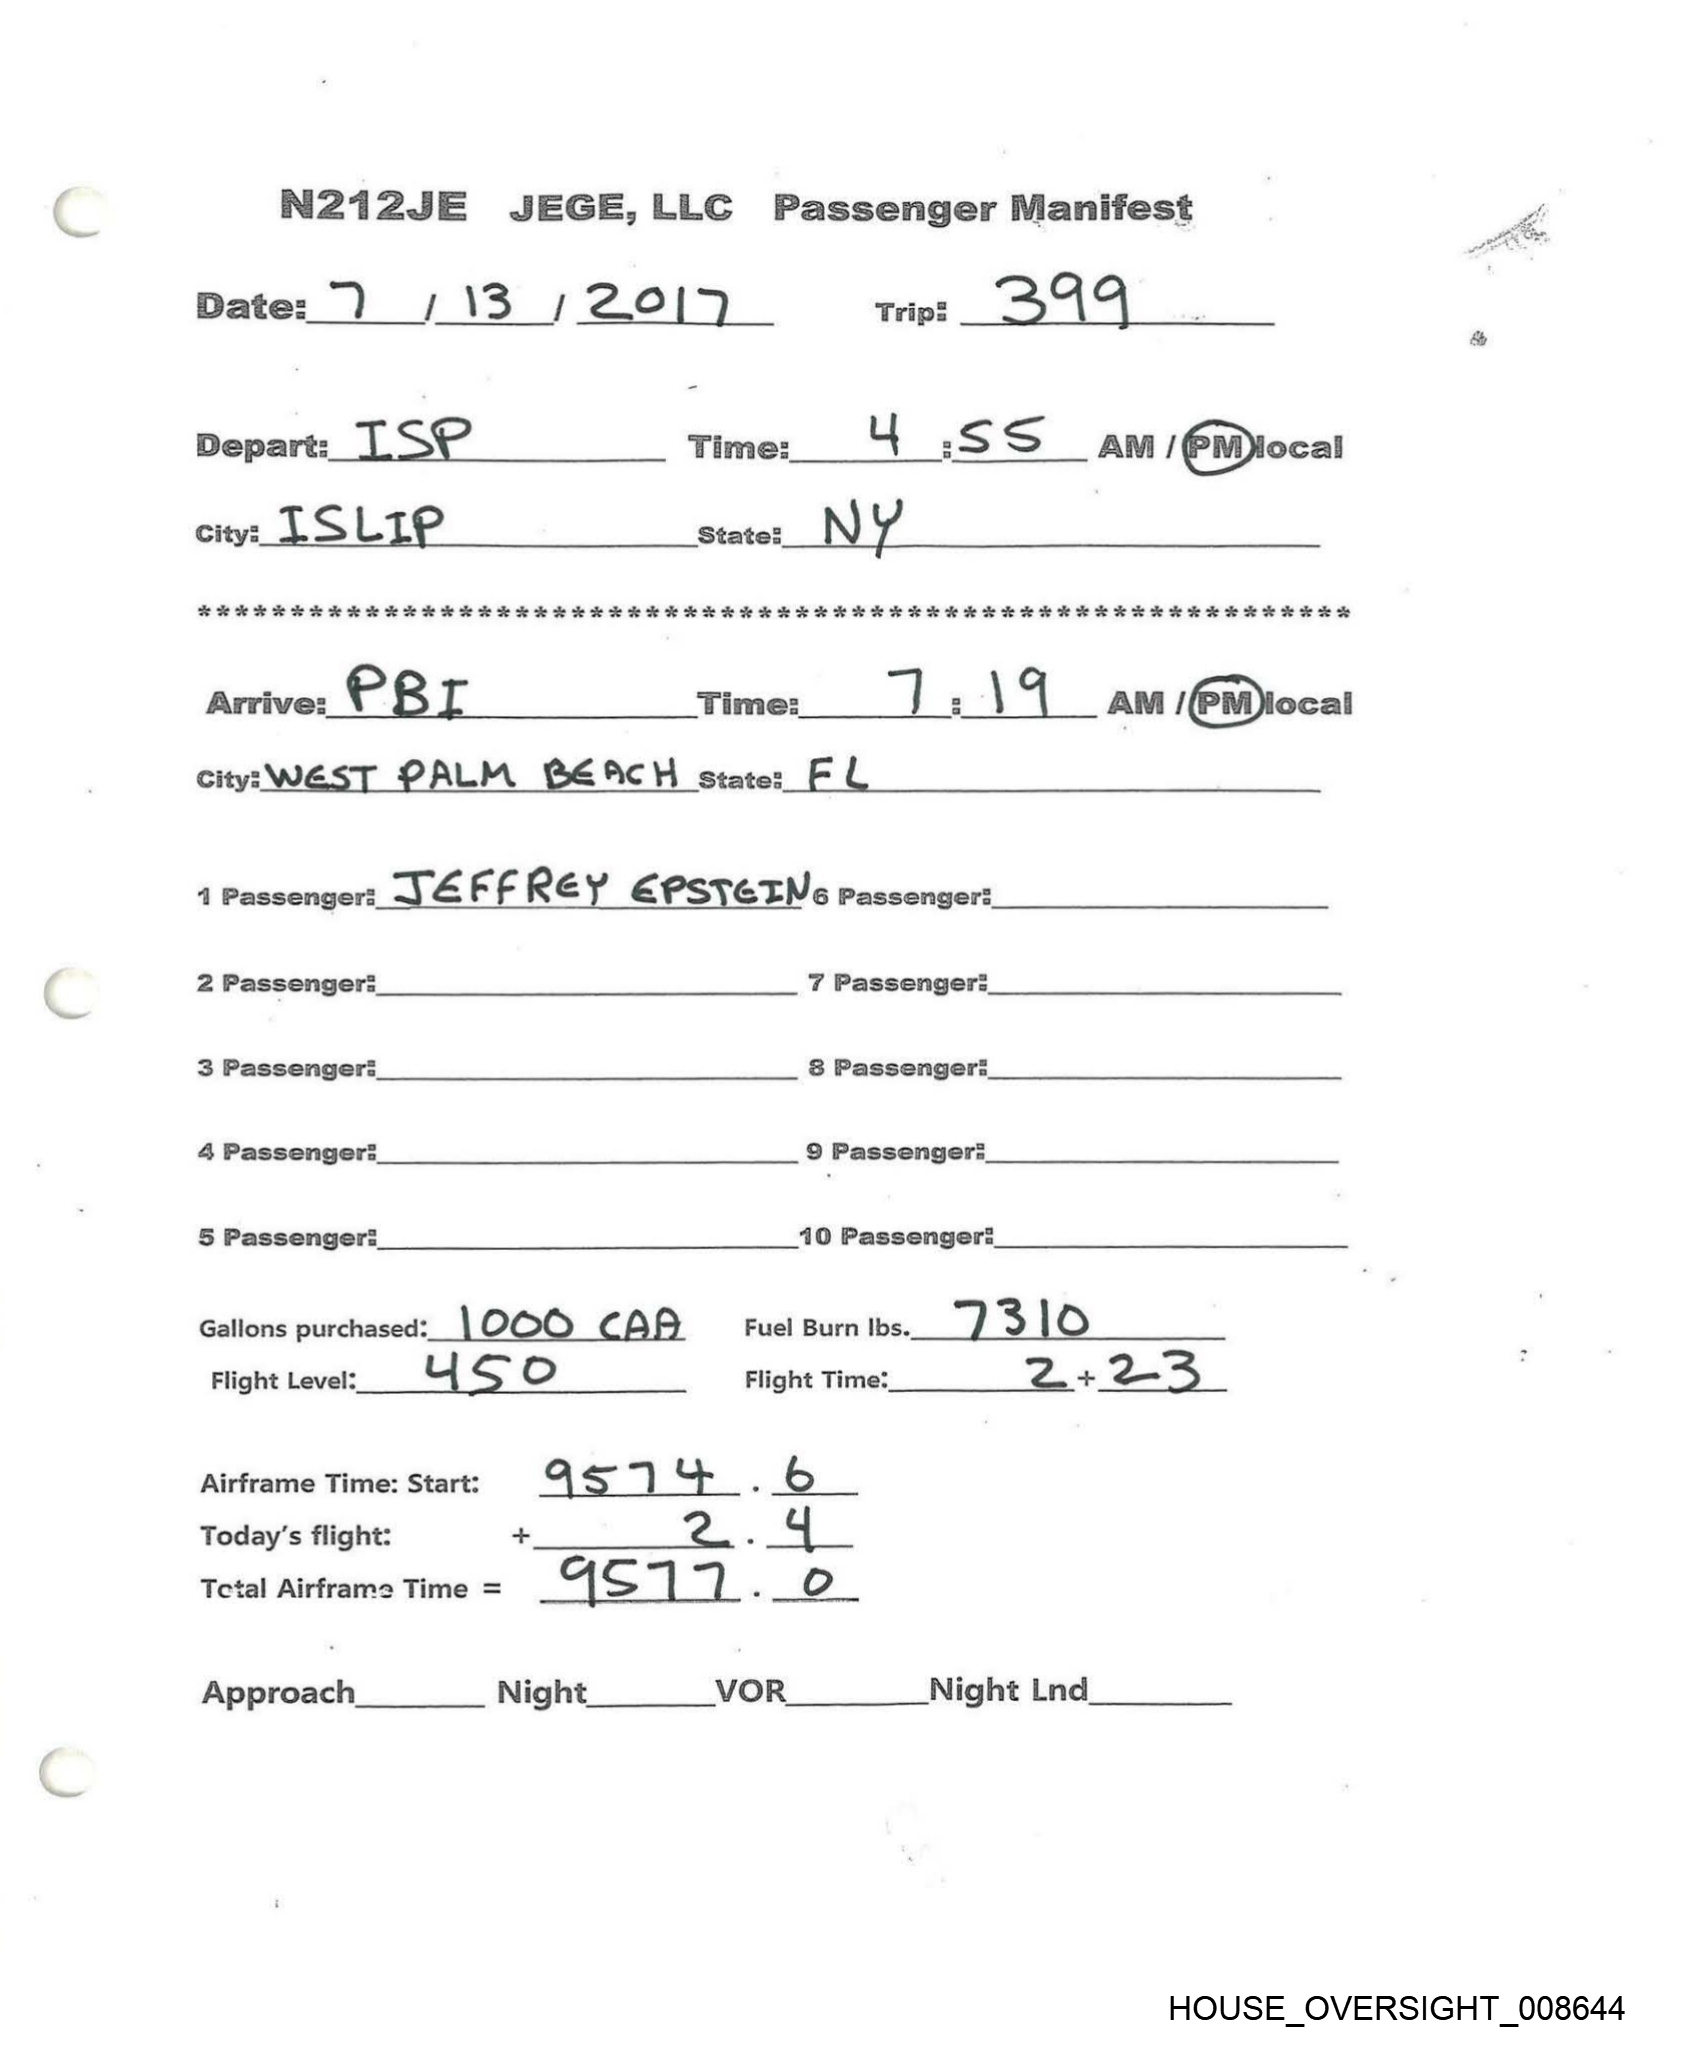 N212JE JEGE, LLC Passenger Manifest
Date: 7 / 13 / 2017 Trip: 399
Depart: ISP Time: 4 :55 AM / PM local
City: ISLIP State: NY
**************************************************************
Arrive: PBI Time: 7 : 19 AM / PM local
City: WEST PALM BEACH State: FL
1 Passenger: JEFFREY EPSTEIN 6 Passenger:
2 Passenger: 7 Passenger:
3 Passenger: 8 Passenger:
4 Passenger: 9 Passenger:
5 Passenger: 10 Passenger:
Gallons purchased: 1000 CAA Fuel Burn lbs. 7310
Flight Level: 450 Flight Time: 2 + 23
Airframe Time: Start: 9574 . 6
Today's flight: + 2 . 4
Total Airframe Time = 9577 . 0
Approach Night VOR Night Lnd
HOUSE_OVERSIGHT_008644